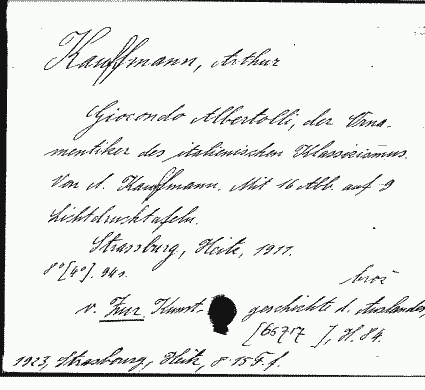 Kauffmann, Arthur
Giocondo Albertolli, der Orna-
mentiker des italienischen Klassizismus.
Von A. Kauffmann. Mit 16 Abb. auf 9
Lichtdrucktafeln.
Strassburg, Heitz, 1911.
8°[4°]. 94s.
bros
v. Zur Kunst- geschichte d. Auslandes,
[66727 ], H. 84.
1923, Strasbourg, Heitz, 8 15 F. f.